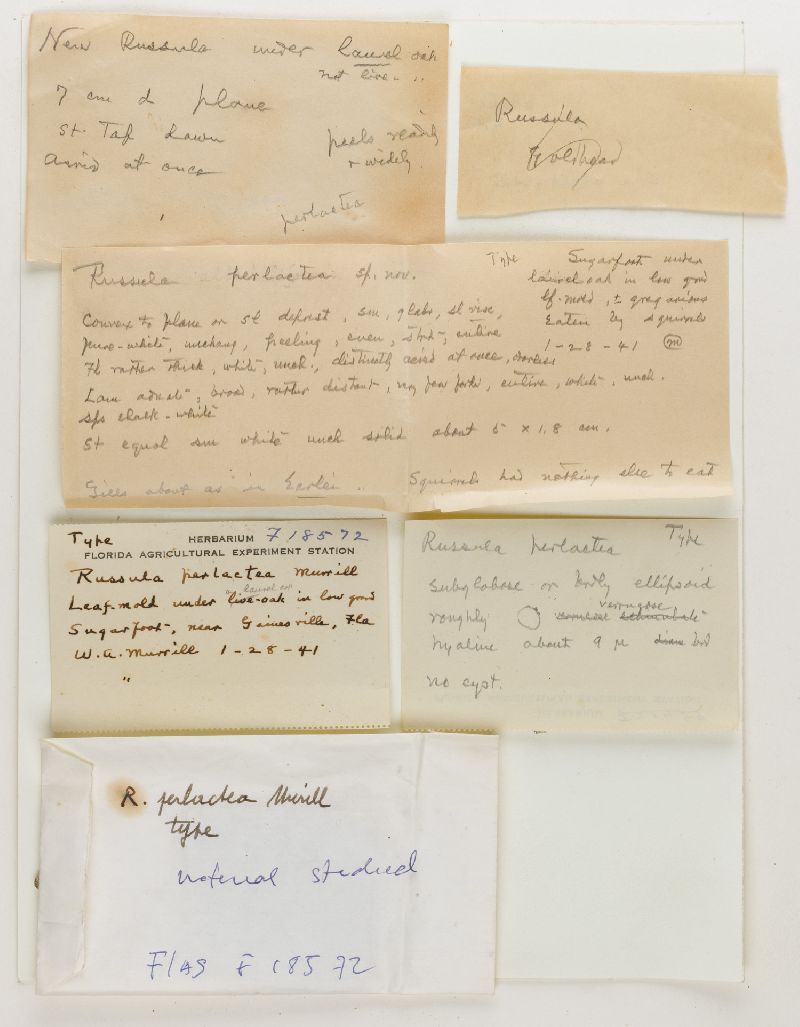 New Russula under laurel oak
not live- "
7 cm d plane
St. Tap down peels readily
Acrid at once & widely
perlactea
Russula
Russula perlactea sp. nov. Type Sugarfoot under
laurel oak in low grnd
lf-mold, ± gregarious
Eaten by squirrels
1-28-41 (m)
Convex to plane or sl deprest, sm, glabr, sl visc,
pure-white, unchang, peeling, even, entire
Fl rather thick, white, unch., distinctly acrid at once,
Lam adnate, broad, rather distant, very few forkt, entire, white, unch.
sps chalk-white
St equal sm white unch solid about 5 x 1.8 cm.
Gills about as in Earlei. Squirrels had nothing else to eat
Type HERBARIUM F 18572
FLORIDA AGRICULTURAL EXPERIMENT STATION
Russula perlactea Murrill
laurel oak
Leaf-mold under live-oak in low grnd
Sugarfoot, near Gainesville, Fla
W.A. Murrill 1-28-41
"
Russula perlactea Type
subglobose or brdly ellipsoid
roughly verrucose echinulate
hyaline about 9 µ diam brd
no cyst.
R. perlactea Murill
type
material studied
FLAS F 18572